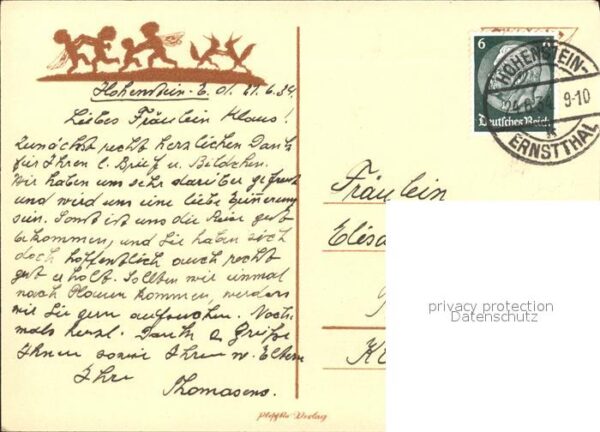 Hohenstein-E. 01. 21.6.34
Liebes Fräulein Klaus!
Zunächst recht herzlichen Dank
für Ihren l. Brief u. Bildchen.
Wir haben uns sehr darüber gefreut
und wird uns eine liebe Erinnerung
sein. Sonst ist uns die Reise gut
bekommen, und Sie haben sich
doch hoffentlich auch recht
gut erholt. Sollten wir einmal
nach Plauen kommen, werden
wir Sie gern aufsuchen. Noch
mals herzl. Dank & Grüße
Ihnen sowie Ihren w. Eltern
Ihre
Thomasens.
6
Deutsches Reich
HOHENSTEIN-
9-10
ERNSTTHAL
Fräulein
privacy protection
Datenschutz
Verlag